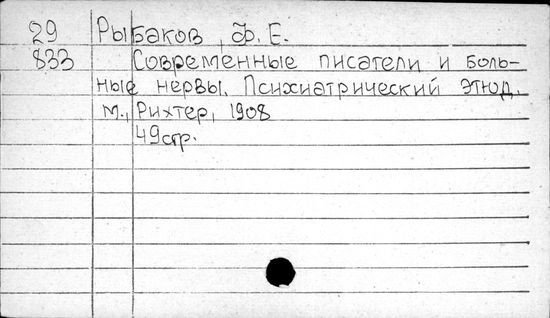 29 Рыбаков, Ф. Е.
833 Современные писатели и боль-
ные нервы. Психиатрический этюд.
М., Рихтер, 1908
49стр.